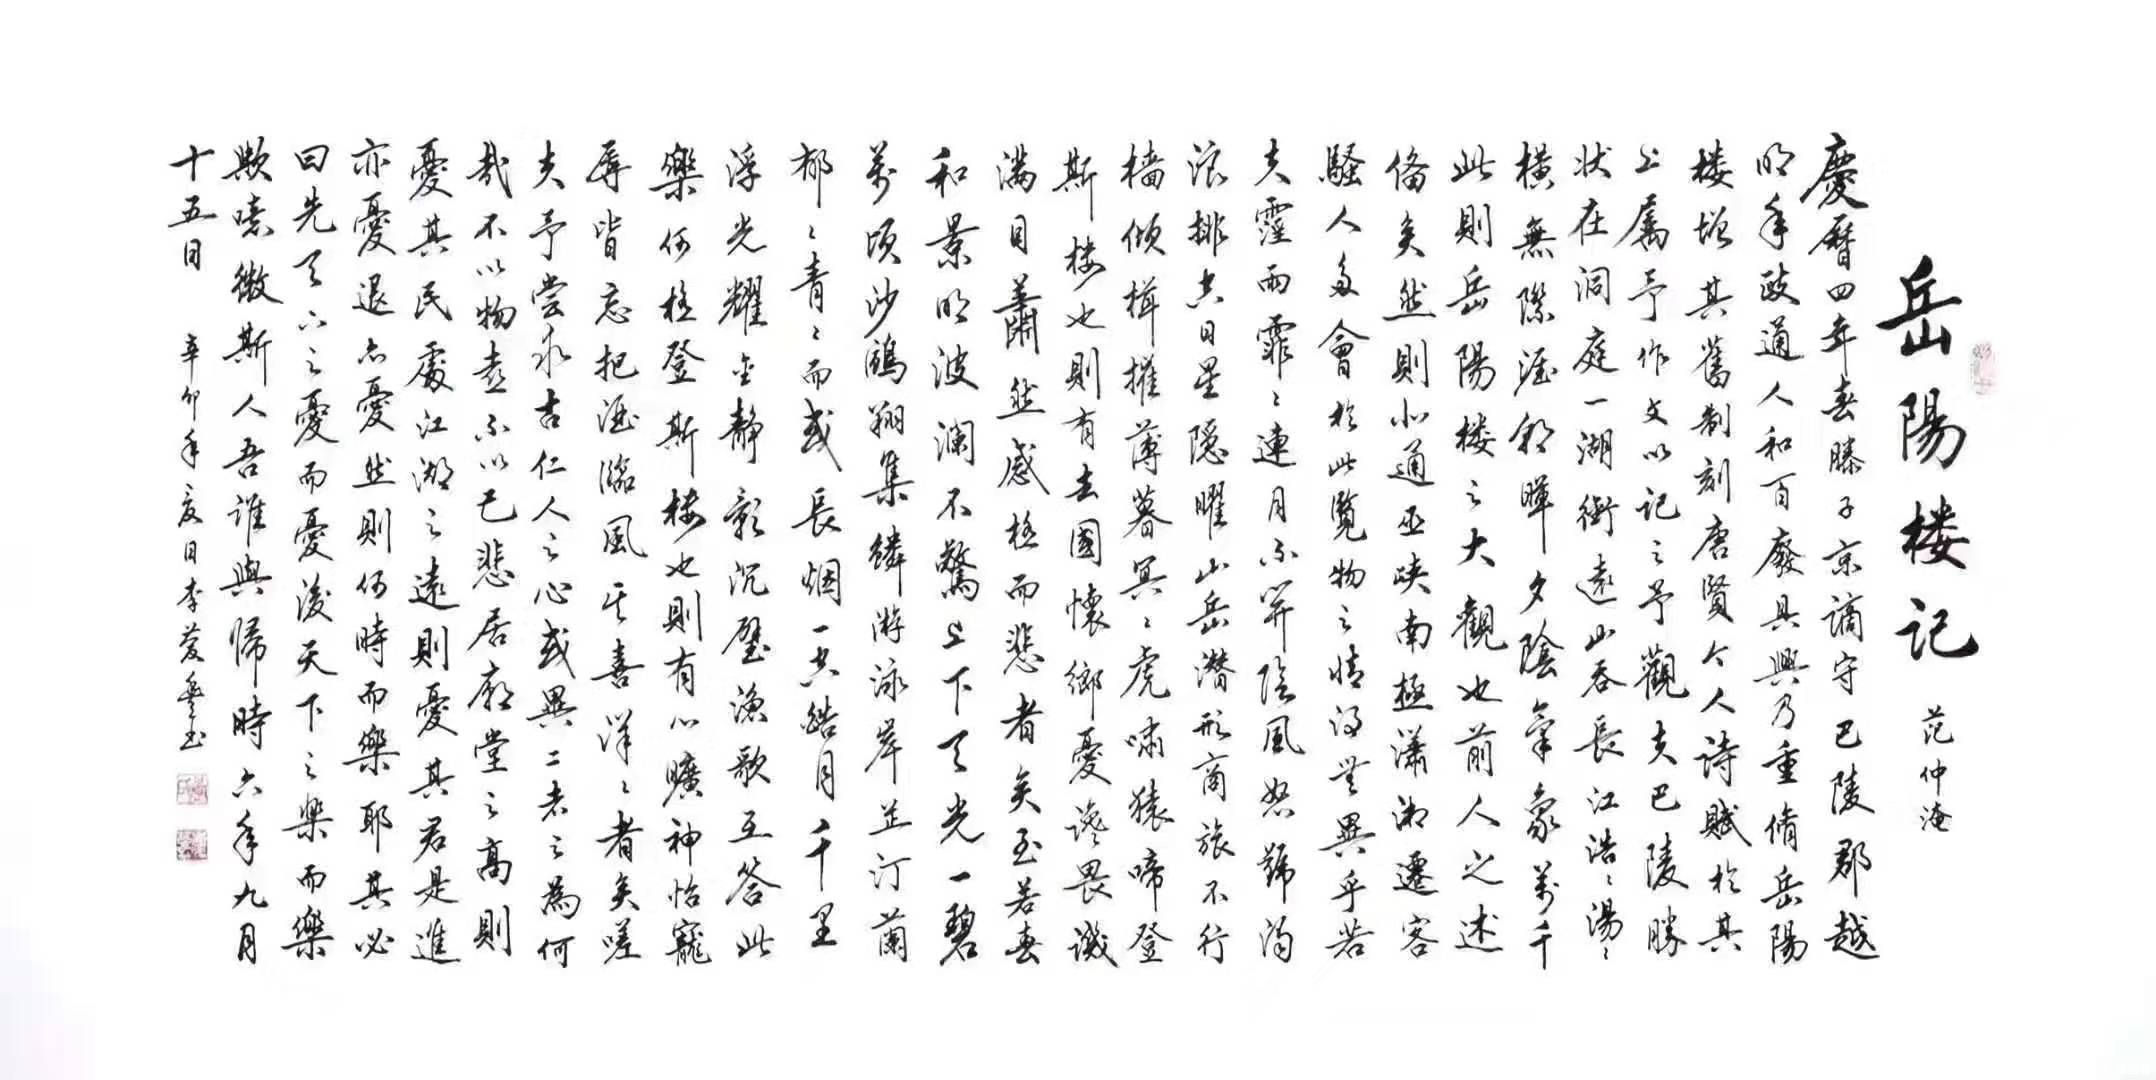 岳陽楼记 范仲淹
慶曆四年春滕子京謫守巴陵郡越
明年政通人和百廢具興乃重脩岳陽
楼增其舊制刻唐賢今人詩賦於其
上屬予作文以记之予觀夫巴陵勝
状在洞庭一湖銜遠山吞長江浩〻湯〻
横無際涯朝暉夕陰氣象萬千
此則岳陽楼之大觀也前人之述
俻矣然則北通巫峡南極瀟湘遷客
騷人多會於此覧物之情得無異乎若
夫霪雨霏〻連月不開陰風怒號濁
浪排空日星隱曜山岳潜形商旅不行
檣傾楫摧薄暮冥〻虎嘯猿啼登
斯楼也則有去國懷鄉憂讒畏譏
滿目蕭然感極而悲者矣至若春
和景明波澜不驚上下天光一碧
萬頃沙鷗翔集鱗游泳岸芷汀蘭
郁〻青〻而或長烟一空皓月千里
浮光耀金静影沉璧漁歌互答此
樂何極登斯楼也則有心曠神怡寵
辱皆忘把酒臨風其喜洋〻者矣嗟
夫予嘗求古仁人之心或異二者之為何
哉不以物喜不以己悲居廟堂之高則
憂其民處江湖之遠則憂其君是進
亦憂退亦憂然則何時而樂耶其必
曰先天下之憂而憂後天下之樂而樂
歟噫微斯人吾谁與歸時六年九月
十五日 辛卯年夏日李